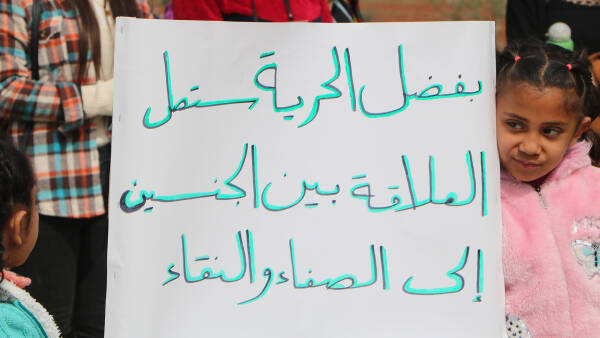 بفضل الحرية ستصل
العلاقة بين الجنسين
إلى الصفاء والنقاء